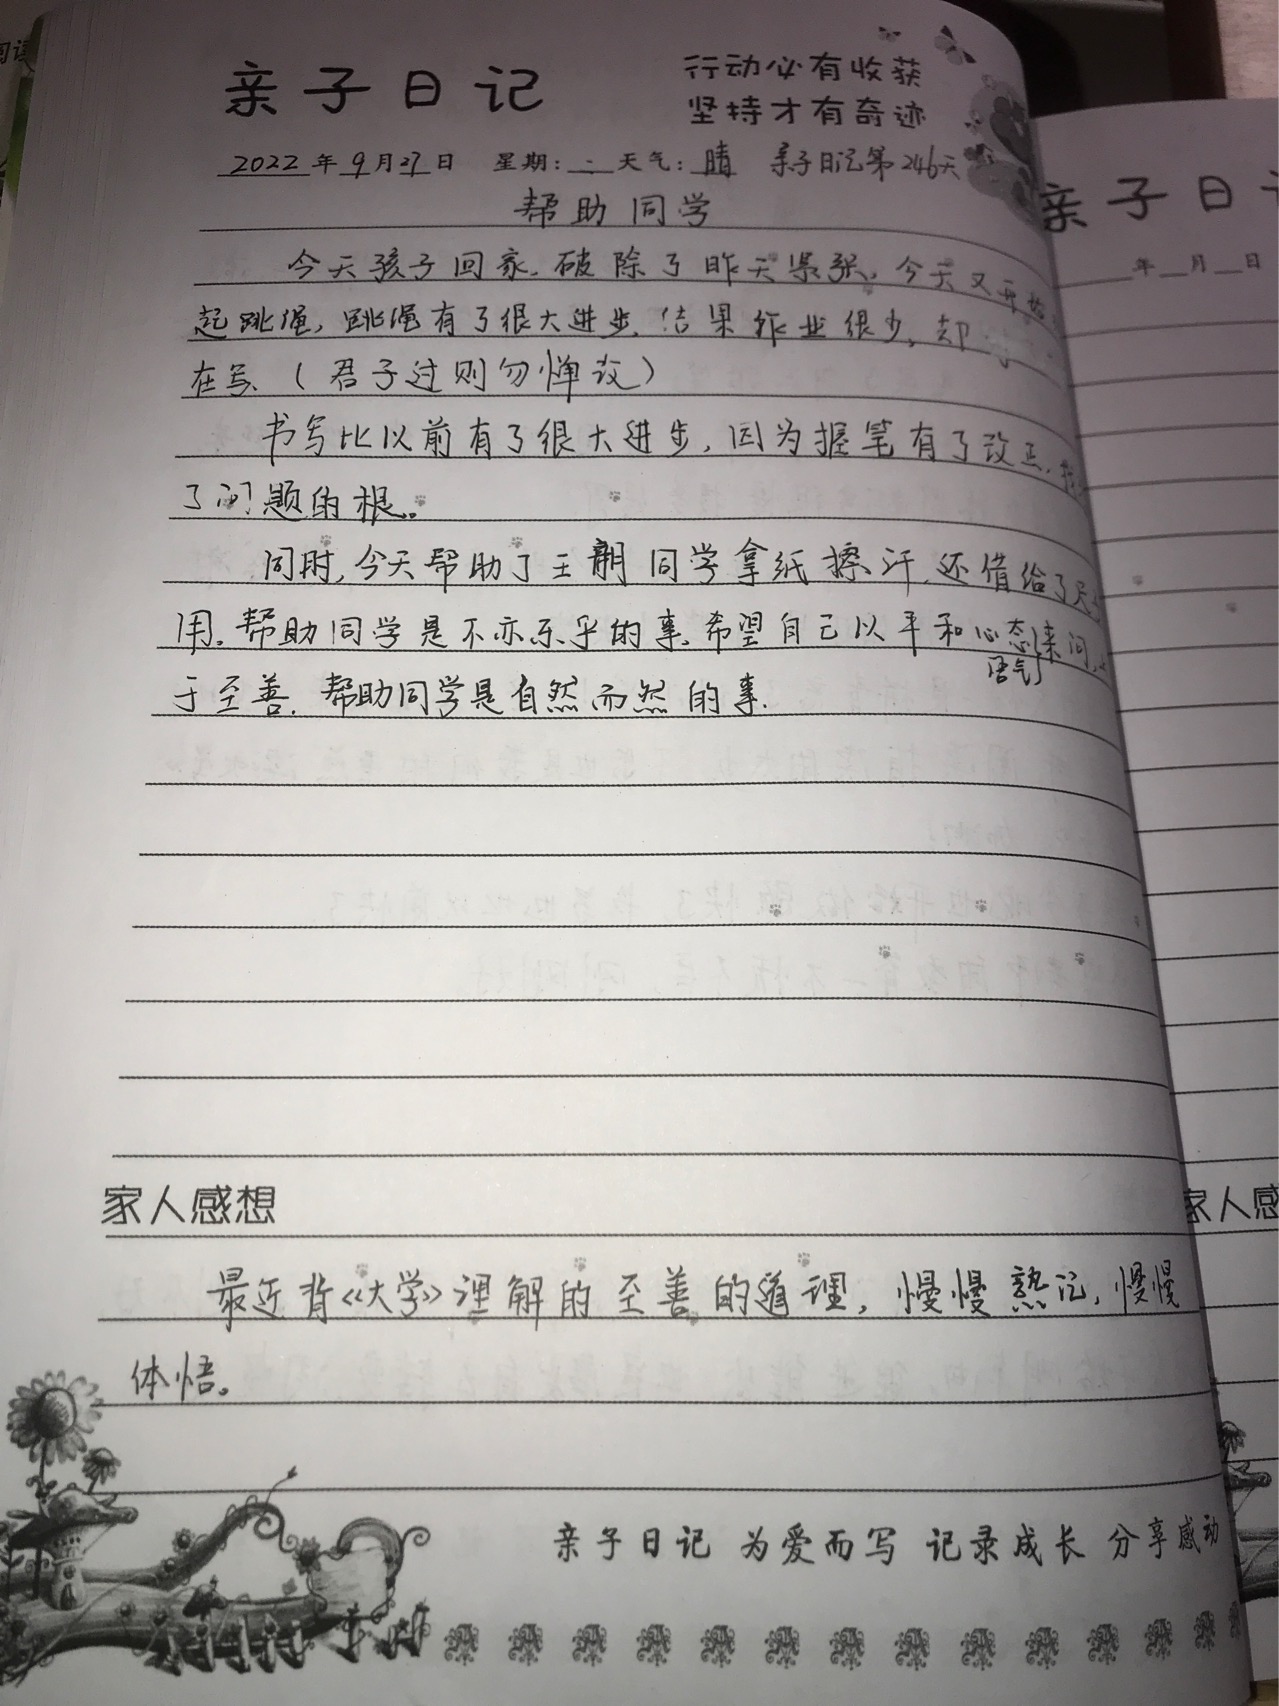 亲子日记
行动必有收获
坚持才有奇迹
2022年9月27日 星期:二天气:晴 亲子日记第246天
帮助同学
今天孩子回家,破除了昨天紧张,今天又开始
起跳绳,跳绳有了很大进步,结果作业很少,却
在写、(君子过则勿惮改)
书写比以前有了很大进步,因为握笔有了改正,找
了问题的根。
同时,今天帮助了王朝同学拿纸擦汗,还借给了
用。帮助同学是不亦乐乎的事。希望自己以平和心态来问,
语气
于至善.帮助同学是自然而然的事.
家人感想
最近背《大学》理解的至善的道理,慢慢熟记,慢慢
体悟。
亲子日记 为爱而写 记录成长 分享感动
亲子日
年 月 日
家人感